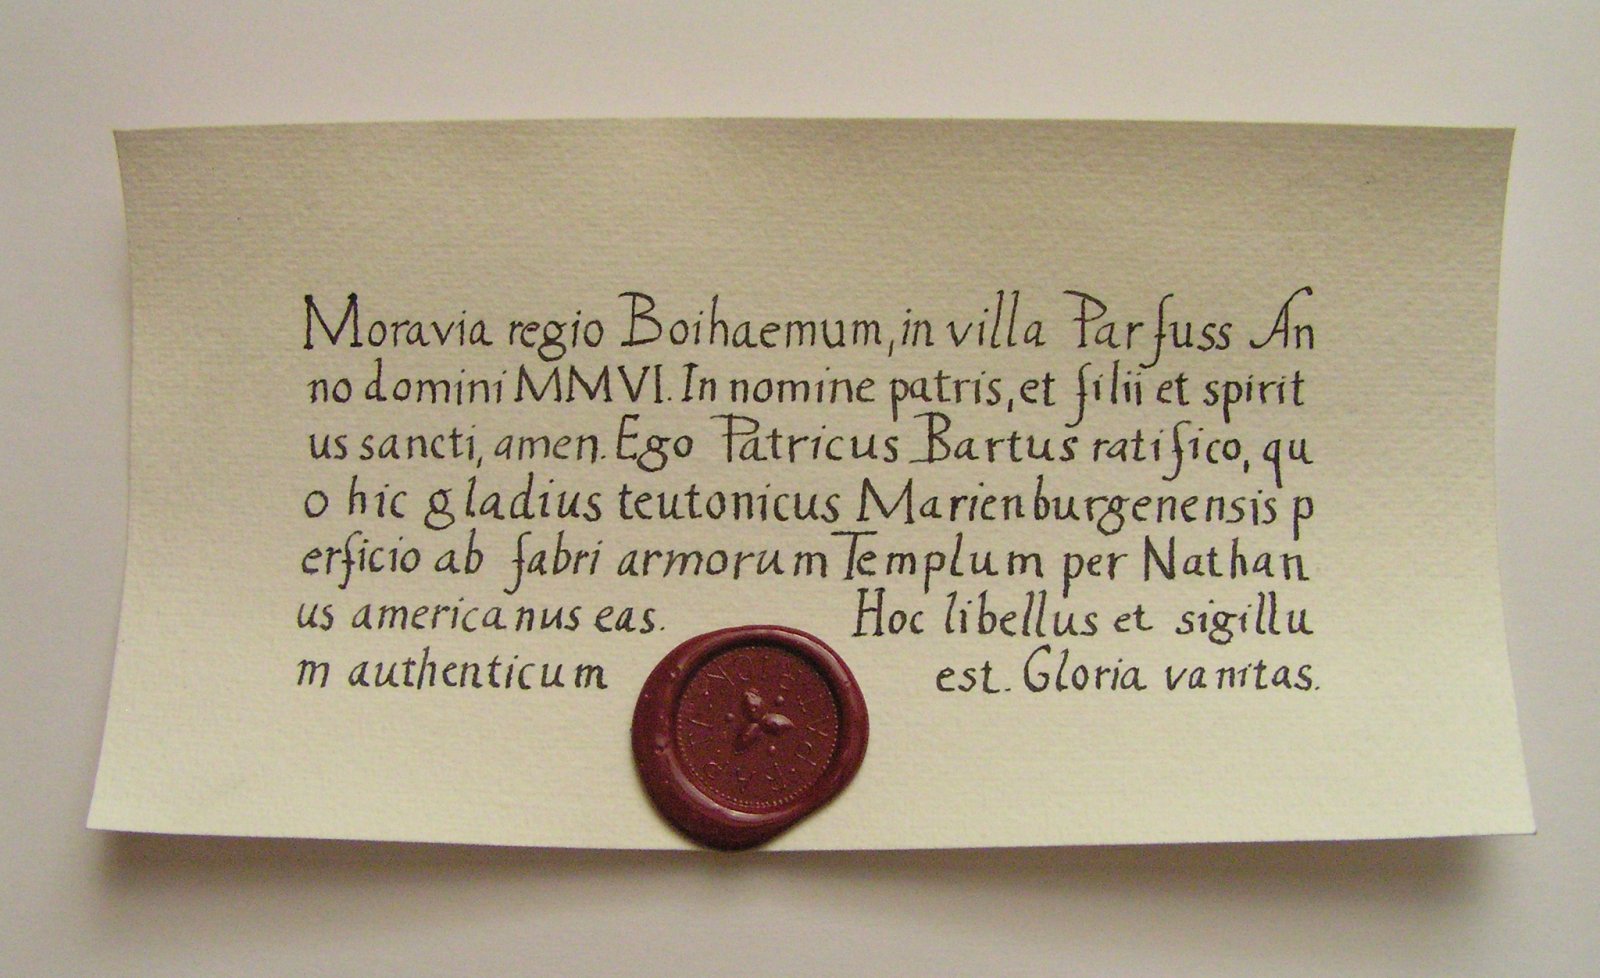 Moravia regio Boihaemum, in villa Parfuss An
no domini MMVI. In nomine patris, et filii et spirit
us sancti, amen. Ego Patricus Bartus ratifico, qu
o hic gladius teutonicus Marienburgenensis p
erficio ab fabri armorum Templum per Nathan
us americanus eas. Hoc libellus et sigillu
m authenticum est. Gloria vanitas.